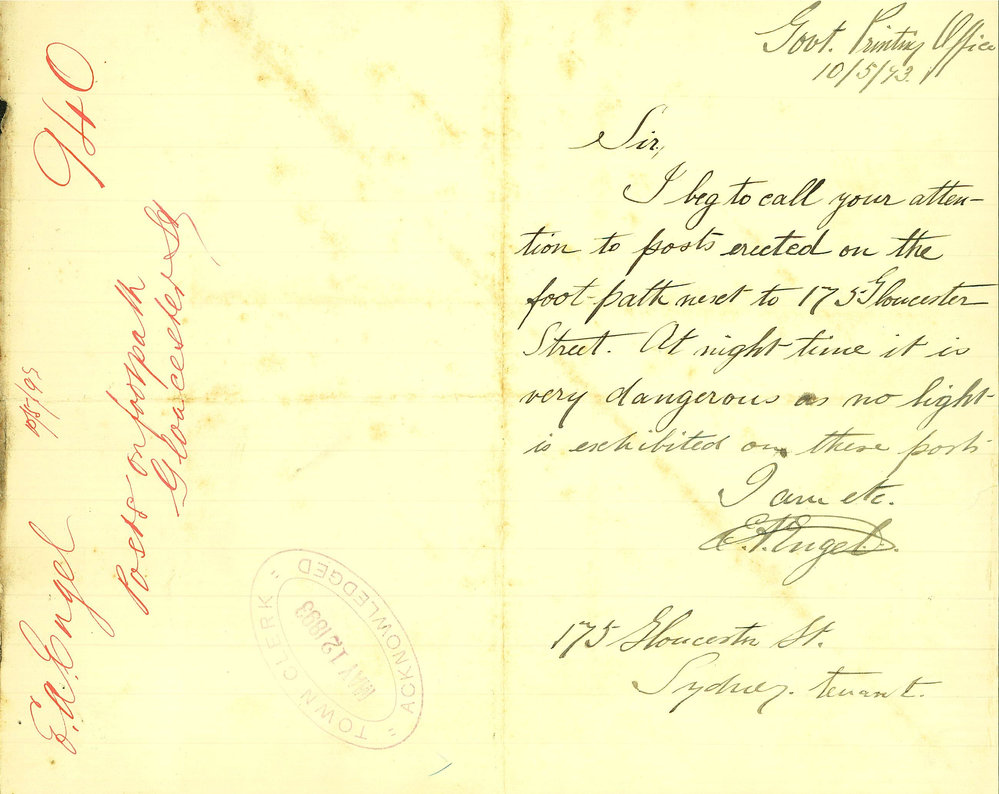 Govt. Printing Office
10/5/93.
Sir,
I beg to call your atten-
tion to posts erected on the
foot-path next to 175 Gloucester
Street. At night time it is
very dangerous as no light
is exhibited on these posts
I am etc.
E.A. Engel.
175 Gloucester St.
Sydney. tenant.
940
Posts on footpath
Gloucester St
10/5/93
E.A. Engel
"TOWN CLERK"
MAY 12 1893
ACKNOWLEDGED